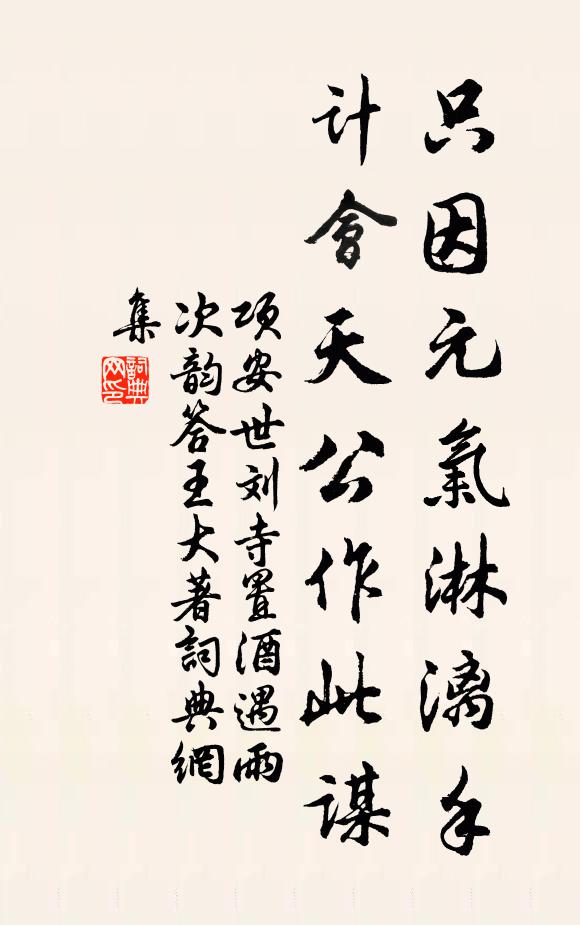 只因元氣淋漓手
计會天公作此謀
项安世刘寺置酒遇雨
次韵答王大著詞典網
集
詞典
网印